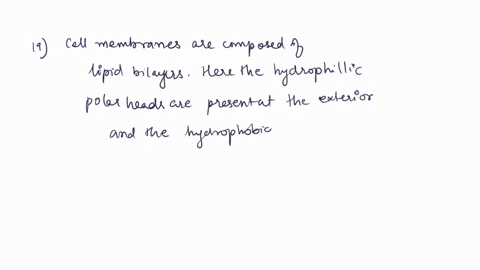 19) Cell membranes are composed of
lipid bilayers. Here the hydrophillic
polar heads are present at the exterior
and the hydrophobic